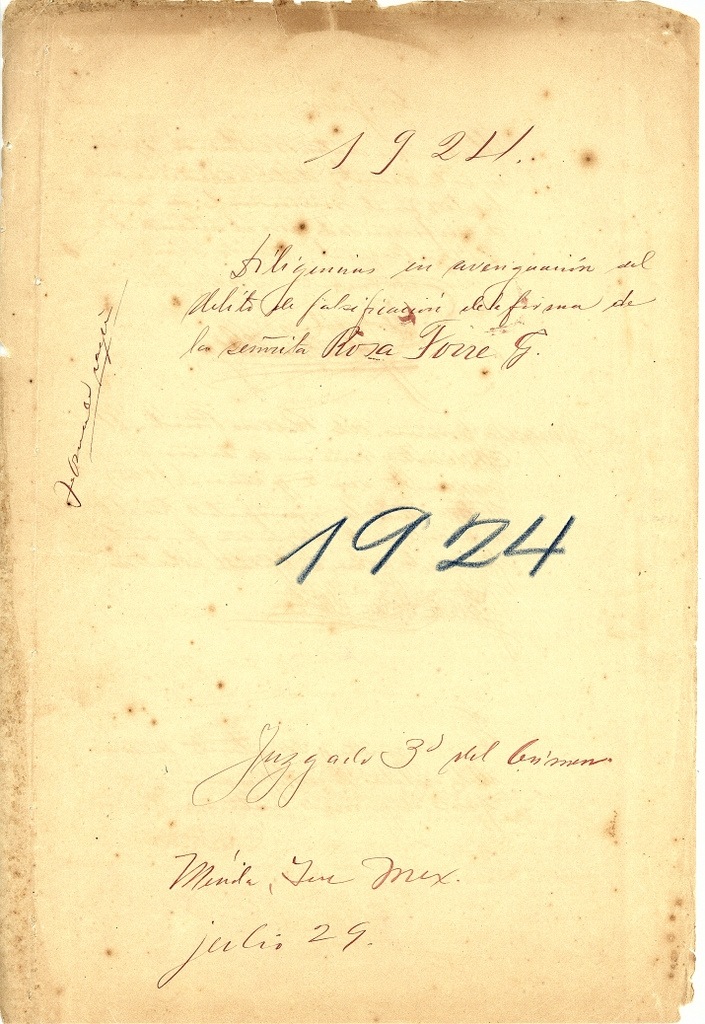 1924.
Diligencias en averiguación del
delito de falsificación de la firma de
la señorita Rosa Torre G.
1924
Juzgado 3º del Crimen.
Mérida, Yuc Mex.
julio 29.